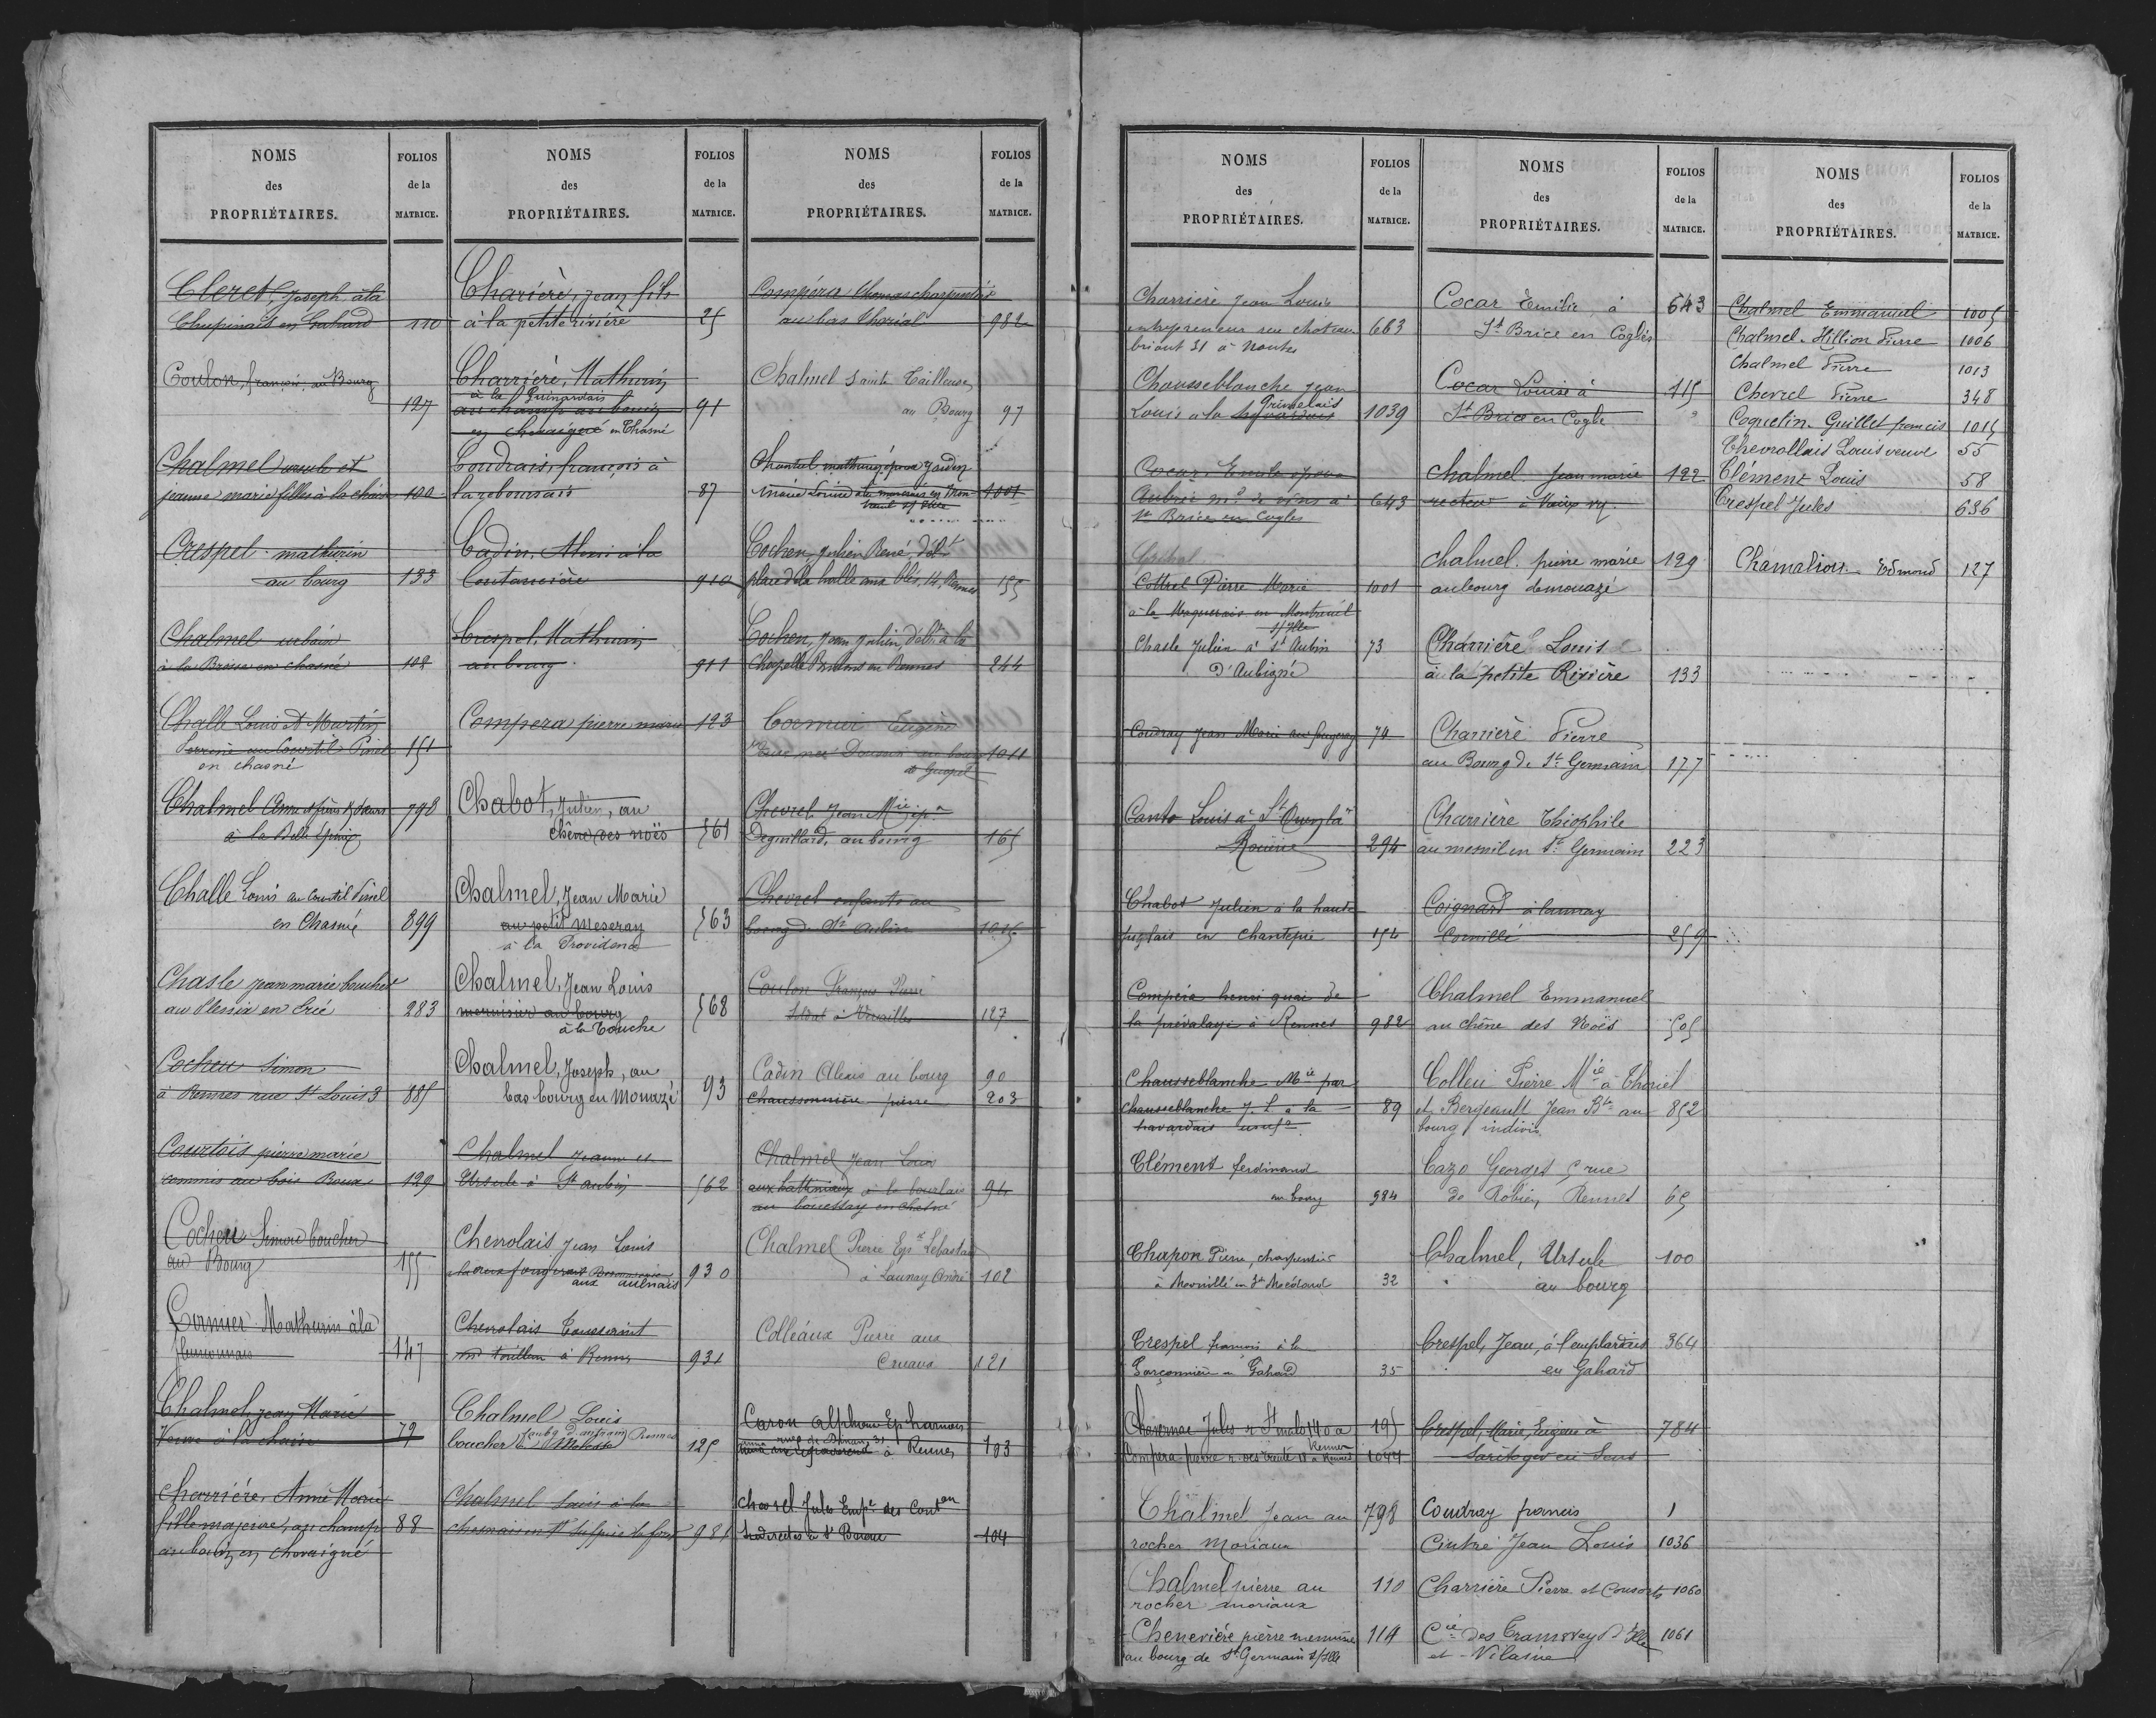 NOMS
des
PROPRIÉTAIRES.
FOLIOS
de la
MATRICE.
Cleret, Joseph à la
Chupinais en Gahard 110
Coulon, françois, au Bourg
127
Chalmel ursule et
jeanne marie filles à la chaise 100
Crespel mathurin
au bourg 133
Chalmel urbain
à la Brosse en chasné 108
Challe Louis et Martin
Perrine au Courtil Pinel 151
en chasné
Chalmel Anne et frères et sœurs 798
à la Belle Epine
Challe Louis au Courtil Pinel
en Chasné 899
Chasle jean marie boucher
au Plessix en Ercé 283
Cocheu Simon
à Rennes rue St Louis 3 885
Courtois pierre marie
commis au bois Roux 129
Cocheu Simon boucher
au Bourg 155
Cormier Mathurin à la
147
Chalmel, jean Marie
Veuve à la chaise 79
Charrière, Anne Marie
fille majeure, au champ 88
au bouin en chevaigné
NOMS
des
PROPRIÉTAIRES.
FOLIOS
de la
MATRICE.
Charière, jean fils
à la petite rivière 25
Charrière, Mathurin
à la Guinardais
au champ au bouin 91
en chevaigné en Chasné
Coudrais, françois à
la reboursais 87
Cadin, Alexis à la
Coutancière 910
Crespel, Mathurin
au bourg 911
Compera pierre marie 123
Chabot, Julien, au
chêne des noës 561
Chalmel, Jean Marie
au petit meseray 563
à la Providence
Chalmel, Jean Louis
menuisier au bourg 568
à la Touche
Chalmel, Joseph, au
bas bourg en Mouazé 93
Chalmel Jeanne et
Ursule à St aubin 562
Chevrolais Jean Louis
aux aulnais 930
Chevrolais Toussaint
md taillleur à Rennes 931
Chalmel Louis
faubg d'antrain Rennes
boucher 125
Chalmel Louis à la
chesnais en St Sulpice la forêt 981
NOMS
des
PROPRIÉTAIRES.
FOLIOS
de la
MATRICE.
Compéra Thomas charpentier
au bas Thorial 982
Chalmel Sainte Tailleuse
au Bourg 97
Chantrel mathurin époux Jardin
Marie Louise à la maserais en Mon 1001
treuil s/ Ille
Cocheu, Julien René, débt
place de la halle aux blés, 14, Rennes 155
Cocheu, Jean Julien, débt à la
Chapelle Boulons en Rennes 244
Cormier Eugène
veuve née Doussin au bourg 1011
de Guipel
Chevrel Jean Mie épx
Deguillard, au bourg 165
Chevrel enfants au
bourg de St Aubin 1015
Coulon François Pierre
Soldat à Versailles 127
Cadin Alexis au bourg 90
Chaussonnière pierre 203
Chalmel Jean Louis
aux hattriaux à la bourlais 94
au bouessay en chasné
Chalmel Pierre Epx Sebastard
à Launay André 102
Colléaux Pierre aux
Cruaux 121
Caron Alphonse Ep Charnois
rue de Dinan, 31
à Rennes 193
Chevrel Jules Empé des Conton
Indirectes à St Brieuc 104
NOMS
des
PROPRIÉTAIRES.
FOLIOS
de la
MATRICE.
Charrière Jean Louis
entrepreneur rue chateau 663
briant 31 à Nantes
Chausseblanche Jean
Grimelais
Louis à la 1039
Cocar Emile époux
Aubrée md de vins à 643
St Brice en Cogles
Cottrel Pierre Marie 1001
à la Maquerais en Montreuil
s/ Ille
Chasle Julien à St Aubin 73
D'Aubigné
Coudray Jean Marie au fougeray 70
Canto Louis à St Ouen la
Rouërie 294
Chabot Julien à la haute
fuglais en Chantepie 154
Compéra henri quai de
la prévalaye à Rennes 982
Chausseblanche Mie par
Chausseblanche J. L à la 89
havardais usufr
Clément ferdinand
au bourg 984
Chapon Pierre, charpentier
à Norvillé en St Médard 32
Crespel francois à la
Garçonnière en Gahard 35
Chevernac Jules r St malo 140 a 195
Rennes
Compera pierre r. des trente 11 à Rennes 1044
Chalmel Jean au 798
rocher Moriaux
Chalmel pierre au 110
rocher moriaux
Chenevière pierre menuisier 114
au bourg de St Germain s/Ille
NOMS
des
PROPRIÉTAIRES.
FOLIOS
de la
MATRICE.
Cocar Emilie, à 643
St Brice en Coglès
Cocar Louise à 115
St Brice en Cogle
Chalmel Jean marie 122
recteur à
Chalmel pierre marie 129
au bourg de mouazé
Charrière Louis
à la petite Rivière 133
Charrière Pierre
au Bourg de St Germain 177
Charrière Théophile
au mesnil en St Germain 223
Coignard à launay
Cornillé 259
Chalmel Emmanuel
au chêne des Noës 505
Colleu Pierre Mie à Thoriel
et Bergeault Jean Bte au 852
bourg indivis
Cazo Georges 5 rue
de Robien, Rennes 65
Chalmel, Ursule 100
au bourg
Crespel, Jean, à l'emplardais 364
en Gahard
Crespel, Marie, Eugène à 784
en Sens
Coudray francis 1
Cintré Jean Louis 1036
Charrière Pierre et Consorts 1060
Cie des Tramsvay d'Ille 1061
et Vilaine
NOMS
des
PROPRIÉTAIRES.
FOLIOS
de la
MATRICE.
Chalmel Emmanuel 1005
Chalmel-Hillion Pierre 1006
Chalmel Pierre 1013
Chevrel Pierre 348
Coquelin-Guillet francis 1015
Chevrollais Louis veuve 55
Clément Louis 58
Crespel Jules 636
Chamaliou Edmond 127